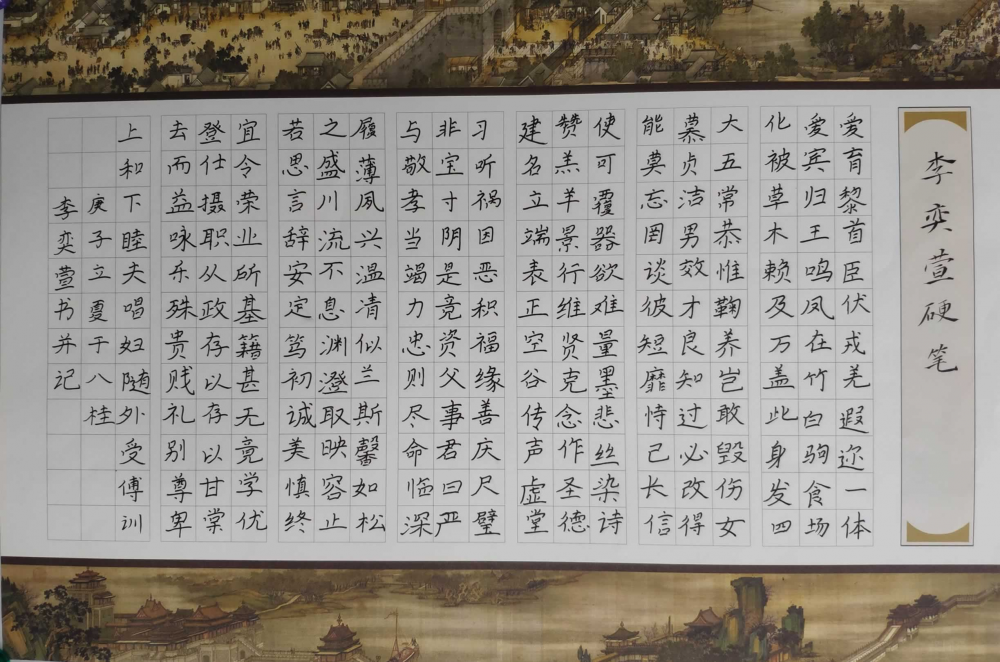 李奕萱硬笔
爱育黎首臣伏戎羌遐迩一体
爱宾归王鸣凤在竹白驹食场
化被草木赖及万盖此身发四
大五常恭惟鞠养岂敢毁伤女
慕贞洁男效才良知过必改得
能莫忘罔谈彼短靡恃己长信
使可覆器欲难量墨悲丝染诗
赞羔羊景行维贤克念作圣德
建名立端表正空谷传声虚堂
习听祸因恶积福缘善庆尺璧
非宝寸阴是竞资父事君曰严
与敬孝当竭力忠则尽命临深
履薄夙兴温凊似兰斯馨如松
之盛川流不息渊澄取映容止
若思言辞安定笃初诚美慎终
宜令荣业所基籍甚无竟学优
登仕摄职从政存以存以甘棠
去而益咏乐殊贵贱礼别尊卑
上和下睦夫唱妇随外受傅训
庚子立夏于八桂
李奕萱书并记